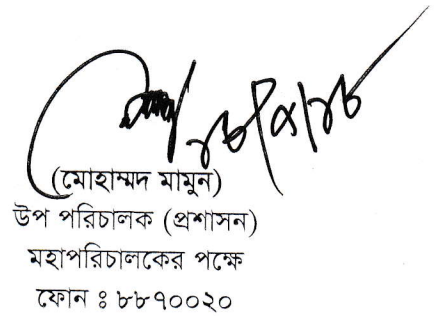 (মোহাম্মদ মামুন)
উপ পরিচালক (প্রশাসন)
মহাপরিচালকের পক্ষে
ফোন ঃ ৮৮৭০০২০